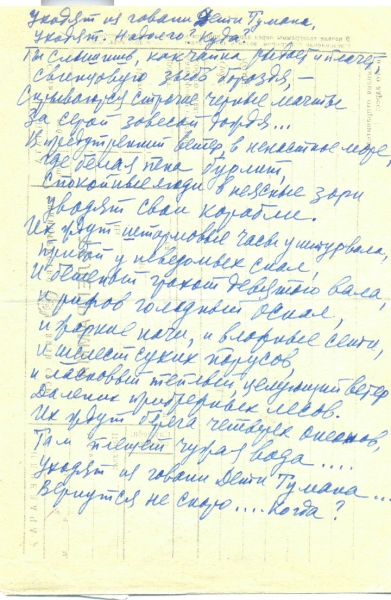 Уходят из гавани Дети Тумана,
Уходят. Надолго? Куда?
Ты слышишь, как чайка рыдает и плачет,
Свинцовую зыбь бороздя, –
Скрываются строгие черные мачты
За серой завесой дождя...
В предутренний ветер, в ненастное море,
Где белая пена бурлит,
Спокойные люди в неясные зори
Уводят свои корабли.
Их ждут штормовые часы у штурвала,
Прибой у неведомых скал,
И бешеный грохот девятого вала,
И рифов голодный оскал,
И жаркие ночи, и влажные сети,
И шелест сухих парусов,
И ласковый теплый, целующий ветер
Далеких прибрежных лесов.
Их ждут берега четырех океанов,
Там плещет чужая вода....
Уходят из гавани Дети Тумана...
Вернутся не скоро.... Когда?